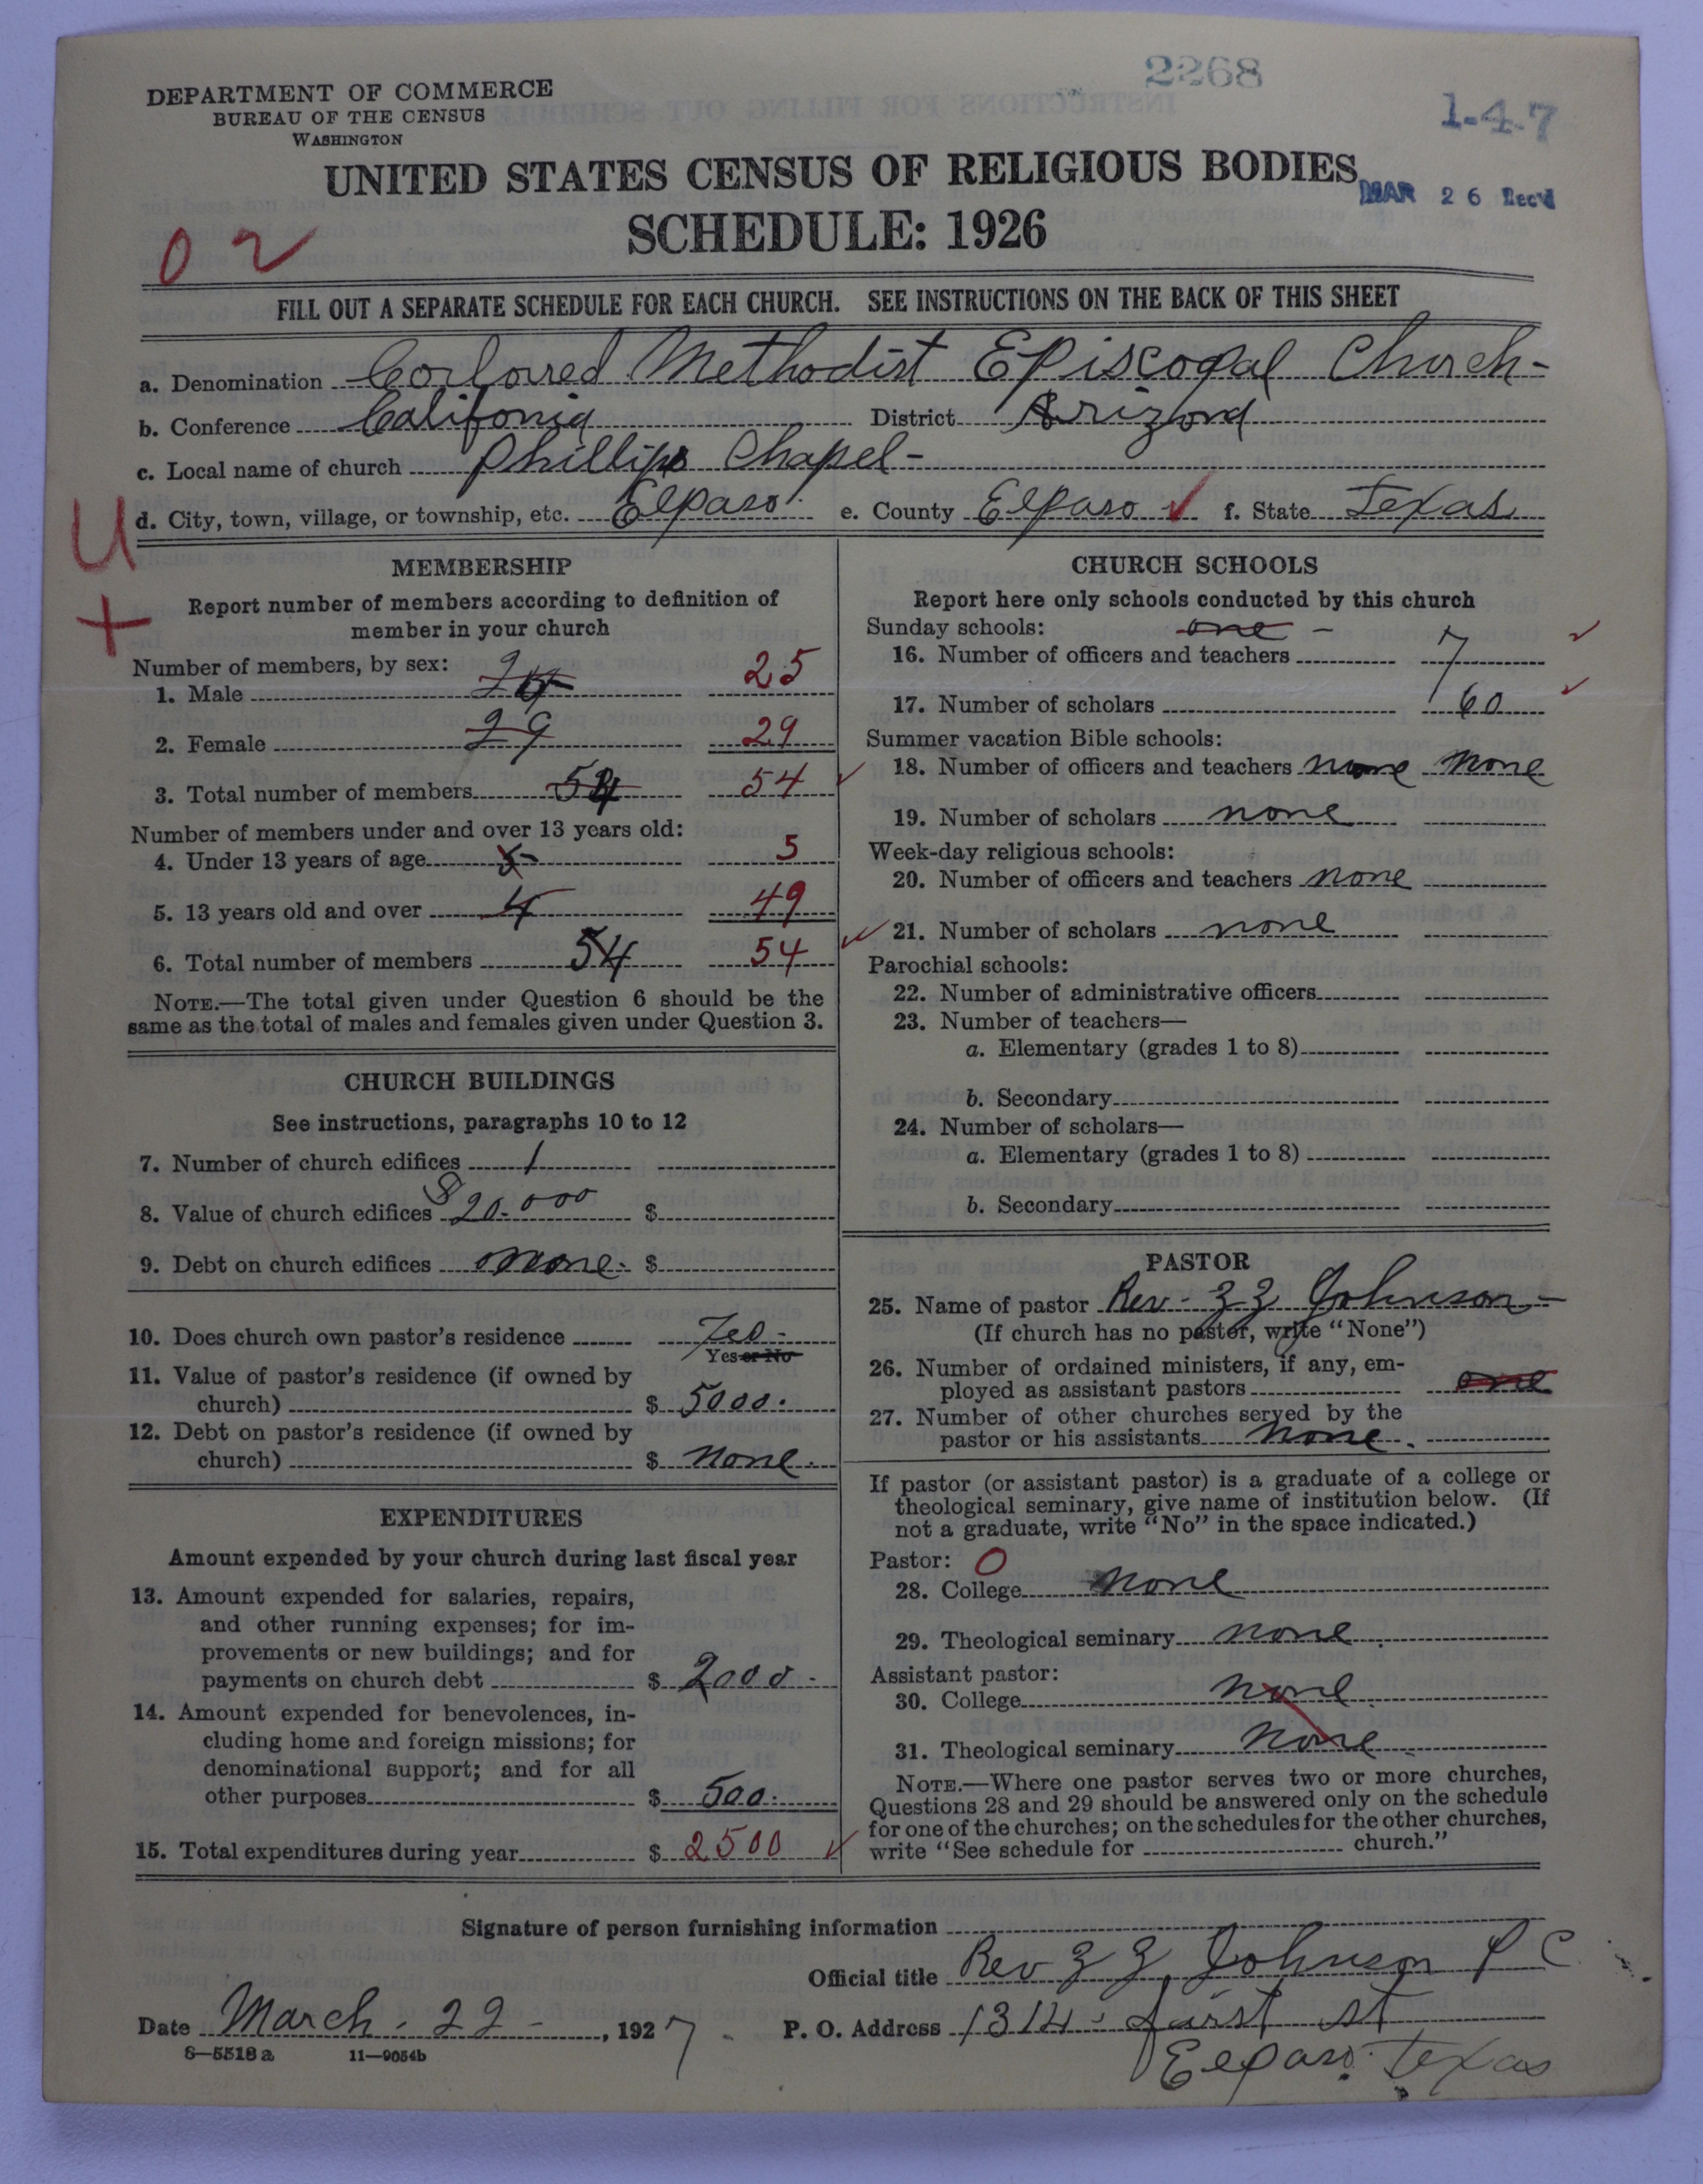 2268
DEPARTMENT OF COMMERCE
BUREAU OF THE CENSUS
WASHINGTON
1-4-7
UNITED STATES CENSUS OF RELIGIOUS BODIES
MAR 26 Rec'd
SCHEDULE: 1926
02
FILL OUT A SEPARATE SCHEDULE FOR EACH CHURCH. SEE INSTRUCTIONS ON THE BACK OF THIS SHEET
a. Denomination Corloured Methodist Episcopal Church-
b. Conference Califonia District Arizona
c. Local name of church Phillips Chapel-
d. City, town, village, or township, etc. Elpaso e. County Elpaso ✓ f. State Texas
U
+
MEMBERSHIP
Report number of members according to definition of
member in your church
Number of members, by sex:
1. Male 25
2. Female 29 29
3. Total number of members 54 54 ✓
Number of members under and over 13 years old:
4. Under 13 years of age 5 5
5. 13 years old and over 4 49
6. Total number of members 54 54 ✓
NOTE.—The total given under Question 6 should be the
same as the total of males and females given under Question 3.
CHURCH BUILDINGS
See instructions, paragraphs 10 to 12
7. Number of church edifices 1
8. Value of church edifices $20.000 $
9. Debt on church edifices none. $
10. Does church own pastor's residence Yes -
Yes or No
11. Value of pastor's residence (if owned by
church) $ 5000.
12. Debt on pastor's residence (if owned by
church) $ none.
EXPENDITURES
Amount expended by your church during last fiscal year
13. Amount expended for salaries, repairs,
and other running expenses; for im-
provements or new buildings; and for
payments on church debt $ 2000 -
14. Amount expended for benevolences, in-
cluding home and foreign missions; for
denominational support; and for all
other purposes $ 500.
15. Total expenditures during year $ 2500 ✓
CHURCH SCHOOLS
Report here only schools conducted by this church
Sunday schools: one -
16. Number of officers and teachers 7 ✓
17. Number of scholars 60 ✓
Summer vacation Bible schools:
18. Number of officers and teachers none none
19. Number of scholars none
Week-day religious schools:
20. Number of officers and teachers none
21. Number of scholars none
Parochial schools:
22. Number of administrative officers
23. Number of teachers—
a. Elementary (grades 1 to 8)
b. Secondary
24. Number of scholars—
a. Elementary (grades 1 to 8)
b. Secondary
PASTOR
25. Name of pastor Rev. Z Z Johnson -
(If church has no pastor, write "None")
26. Number of ordained ministers, if any, em-
ployed as assistant pastors one
27. Number of other churches served by the
pastor or his assistants none.
If pastor (or assistant pastor) is a graduate of a college or
theological seminary, give name of institution below. (If
not a graduate, write "No" in the space indicated.)
Pastor: 0
28. College none
29. Theological seminary none.
Assistant pastor:
30. College none
31. Theological seminary none
NOTE.—Where one pastor serves two or more churches,
Questions 28 and 29 should be answered only on the schedule
for one of the churches; on the schedules for the other churches,
write "See schedule for church."
Signature of person furnishing information
Official title Rev Z Z Johnson P C
Date March. 22 -, 1927. P. O. Address 1314 first st
Elpaso. Texas
8—5518a 11—9054b